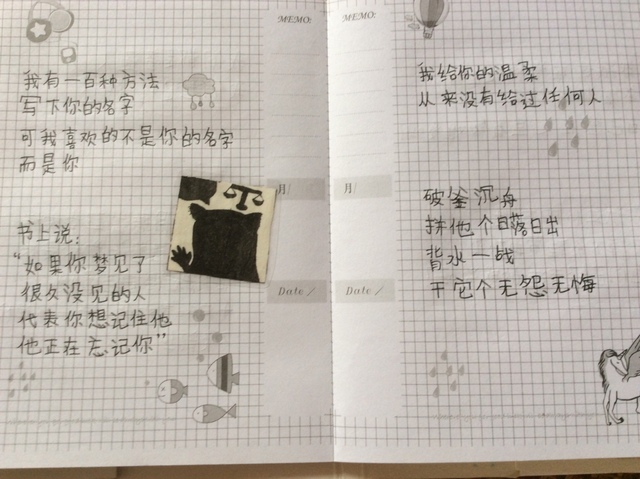 MEMO:
我有一百种方法
写下你的名字
可我喜欢的不是你的名字
而是你
月/
书上说:
“如果你梦见了
很久没见的人
代表你想记住他
他正在忘记你”
Date /
MEMO:
我给你的温柔
从来没有给过任何人
月/
破釜沉舟
拼他个日落日出
背水一战
干它个无怨无悔
Date /